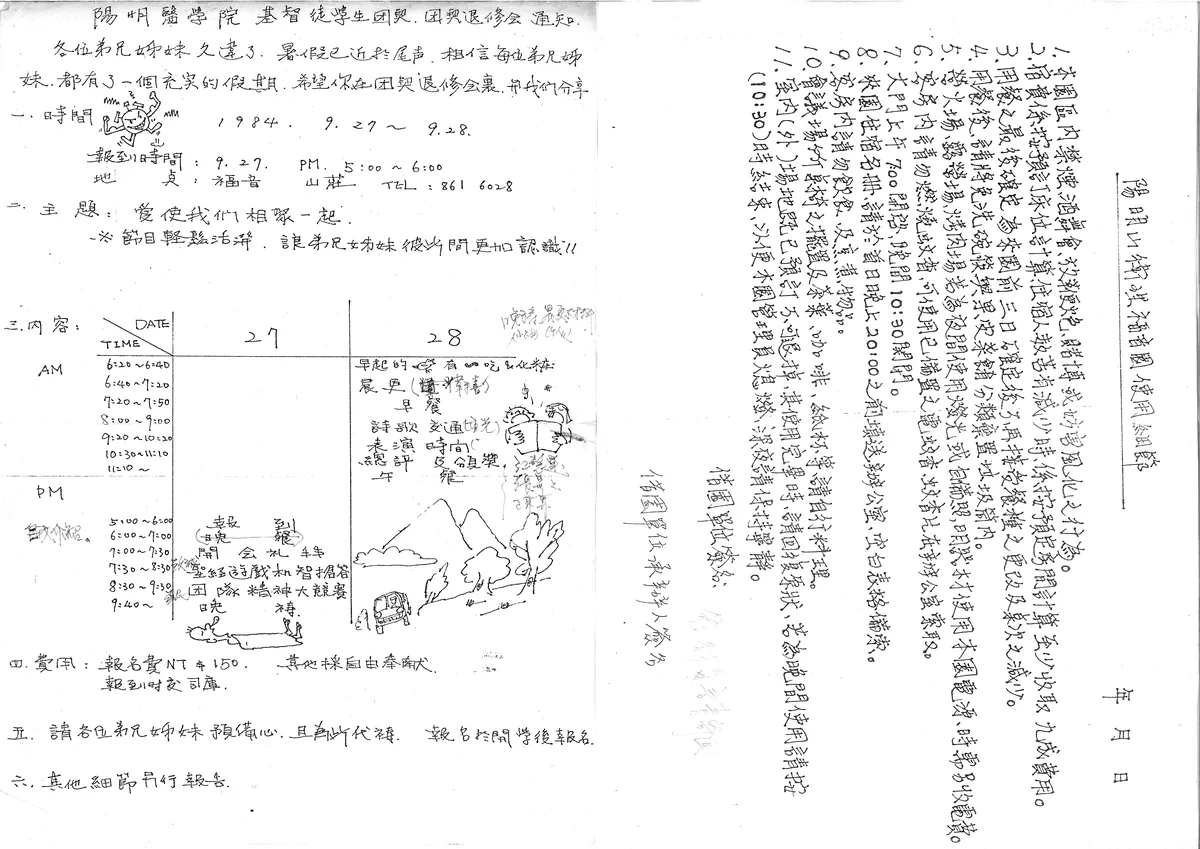 陽明醫學院 基督徒學生团契. 团契退修会 通知.
各位弟兄姊妹 久違了. 暑假已近於尾声. 相信每位弟兄姊
妹. 都有了一個充实的假期. 希望你在团契退修会裏. 和我們分享
一. 時間 1984. 9.27～ 9.28.
報到時間: 9.27. PM. 5:00～6:00
地 点: 福音 山莊 TEL: 861 6028
二. 主 題: 爱使我們相聚一起.
※節目輕鬆活潑. 讓弟兄姊妹彼此間更加認識!!
三.内容: DATE 27 28
TIME
AM 6:20～6:40 早起的 有 吃
6:40～7:20 晨更
7:20～7:50 早餐
8:00～9:00 詩歌交通
9:20～10:20 表演時間
10:30～11:10 總評及頒獎.
11:10～ 午餐
PM
自我介紹.
5:00～6:00 報到
6:00～7:00 晚餐
7:00～7:30 開会礼拜
7:30～8:30 聖經遊戲和智搶答
8:30～9:30 团隊精神大競賽
9:40～ 晚禱.
四.費用: 報名費NT$150. 其他採自由奉献.
報到時交司庫.
五. 請各位弟兄姊妹預備心. 且為此代禱. 報名於開學後報名.
六. 其他細節另行報告.
陽明山衛理福音園使用細節
年 月 日
1. 本園區内禁煙、酒、舞會、放鞭炮、賭博或妨害風化之行為。
2. 宿費係按預訂床位計算,住宿人數若有減少時,係按預定房間計算,至少收取九成費用。
3. 用餐之最後確定為來園前三日,確定後不再接受餐種之更改及桌次之減少。
4. 用餐後,請將免洗碗筷與果皮菜餚分類棄置垃圾筒内。
5. 營火場、露營場、烤肉場若為夜間使用燈光或自備照明器材使用本園電源時需另收電費。
6. 客房内請勿燃燒蚊香,可使用已備置之電蚊香,蚊香片在辦公室索取。
7. 大門上午 7:00 開啓,晚間 10:30 関門。
8. 來園住宿名册,請於首日晚上 20:00 之前填送辦公室,空白表格備索。
9. 客房内請勿飲食及烹煮物品。
10. 會議場所桌椅之擺置及茶葉、咖啡、紙杯等請自行料理。
11. 室内(外)場地既已預訂不可退掉,其使用完畢時,請回復原狀,若為晚間使用請按
(10:30)時結束,以便本園管理員熄燈,深夜請保持寧靜。
借園單位簽名:
借園單位承辦人簽名